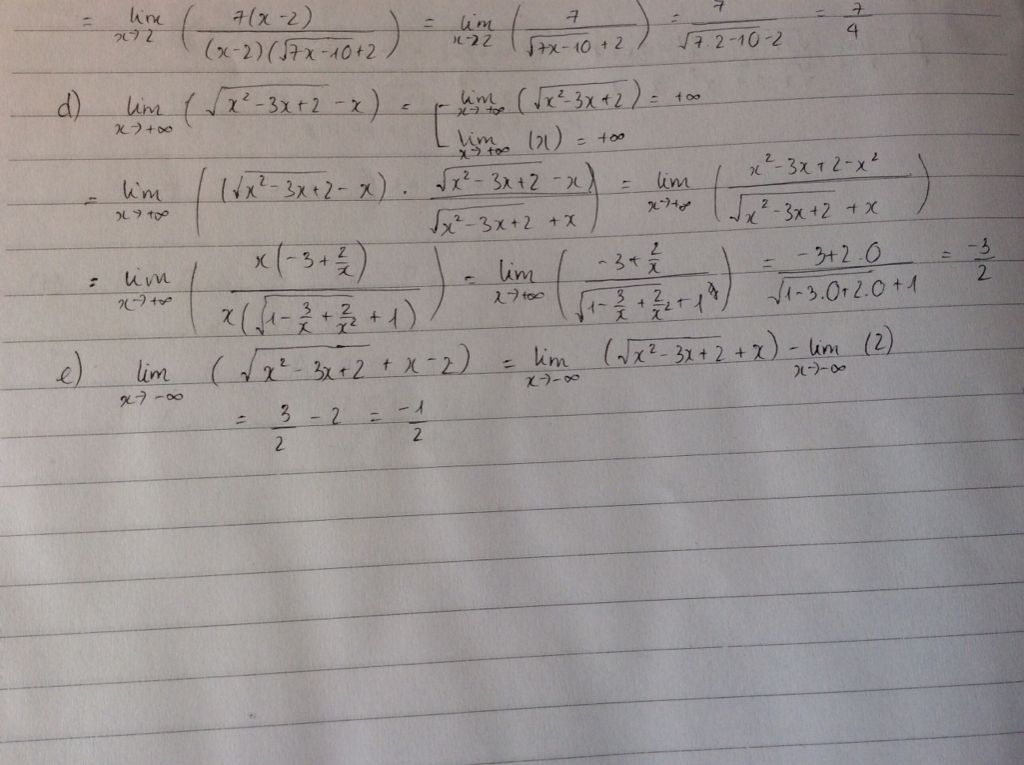 = lim x→2 ( 7(x-2) / (x-2)(√(7x-10)+2) ) = lim x→2 ( 7 / √(7x-10) +2 ) = 7 / √(7.2-10) -2 = 7/4
d) lim x→+∞ (√(x²-3x+2) - x) = [ - lim x→+∞ (√(x²-3x+2)) = +∞
lim x→+∞ (x) = +∞
= lim x→+∞ ( (√(x²-3x+2) - x) . √(x²-3x+2) - x) / √(x²-3x+2) + x ) = lim x→+∞ ( x²-3x+2-x² / √(x²-3x+2) + x )
= lim x→+∞ ( x(-3+2/x) / x(√(1-3/x+2/x²) + 1) ) = lim x→+∞ ( -3+2/x / √(1-3/x+2/x²) + 1 ) = -3+2.0 / √(1-3.0+2.0) + 1 = -3/2
e) lim x→-∞ (√(x²-3x+2) + x - 2) = lim x→-∞ (√(x²-3x+2) + x) - lim x→-∞ (2)
= 3/2 - 2 = -1/2